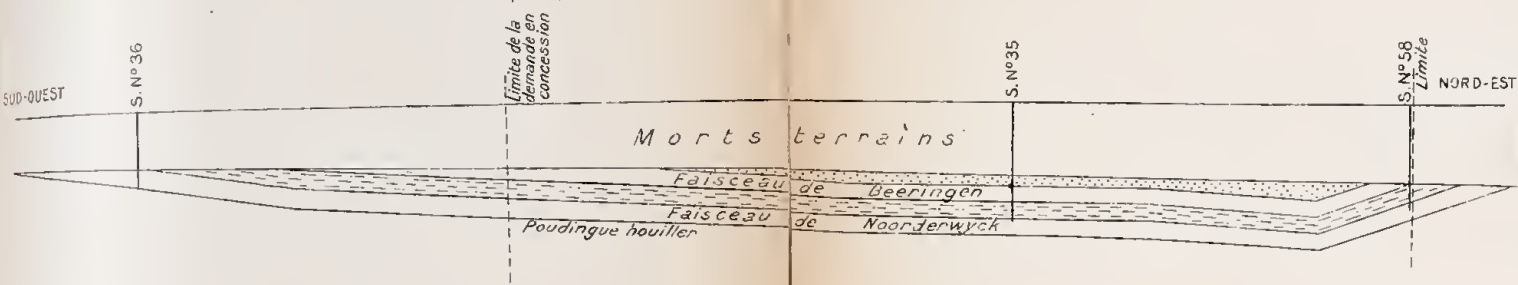 SUD-OUEST
S. N° 36
Limite de la
demande en
concession
S. N° 35
S. N° 58
Limite
NORD-EST
Morts terrains
Faisceau de Beeringen
Faisceau de Noorderwyck
Poudingue houiller